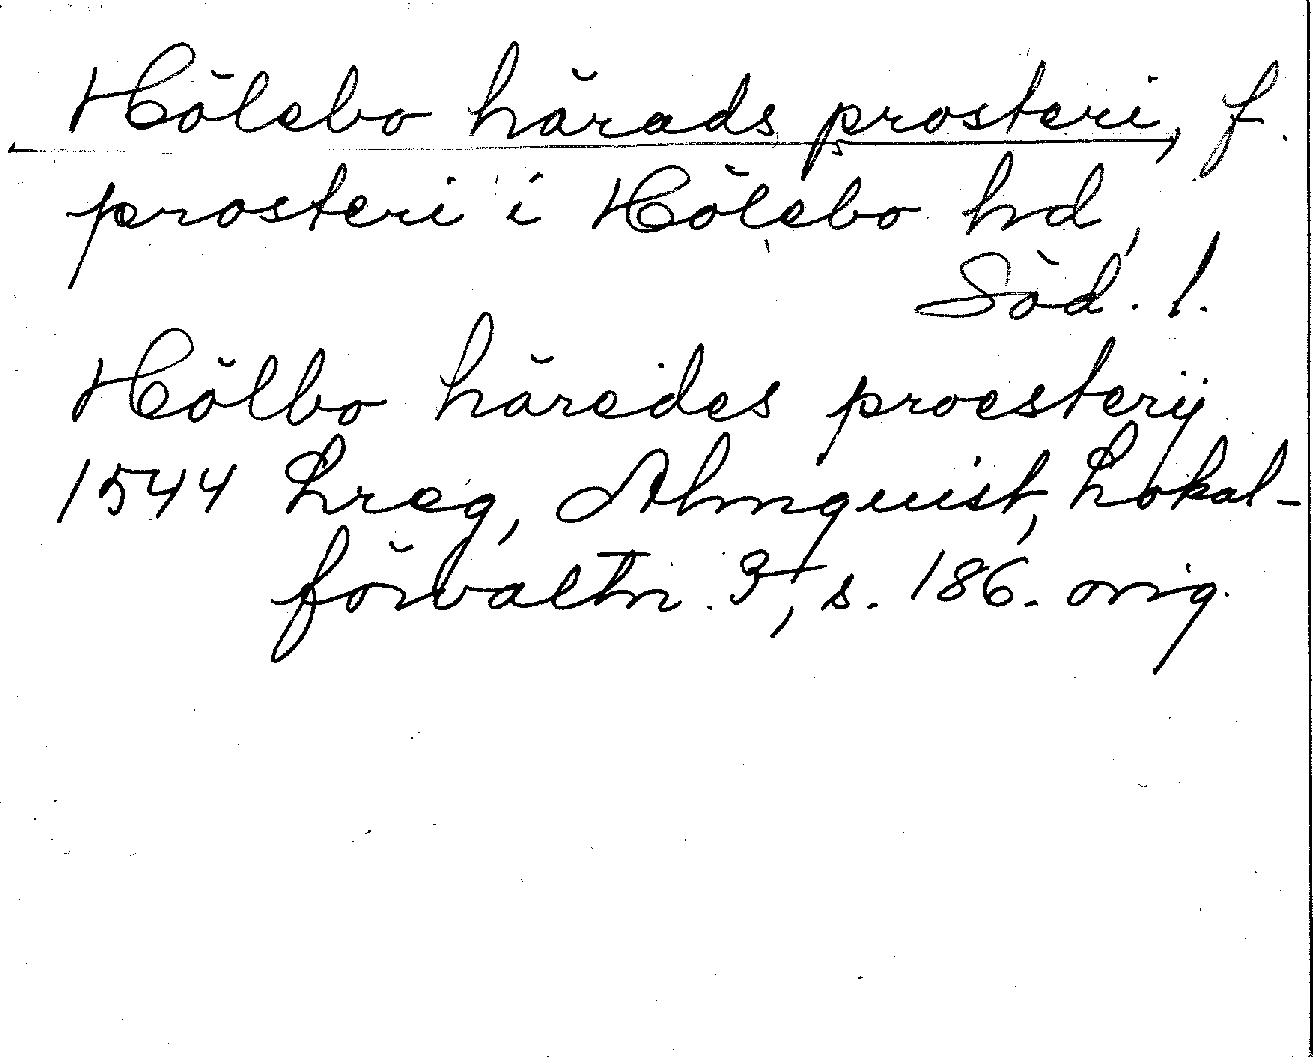 Hölebo härads prosteri, f.
prosteri i Hölebo hd,
Söd. l.
Hölbo häredes proesterij
1544 Lreg, Almquist, Lokal-
förvaltn. 3, s. 186. orig.